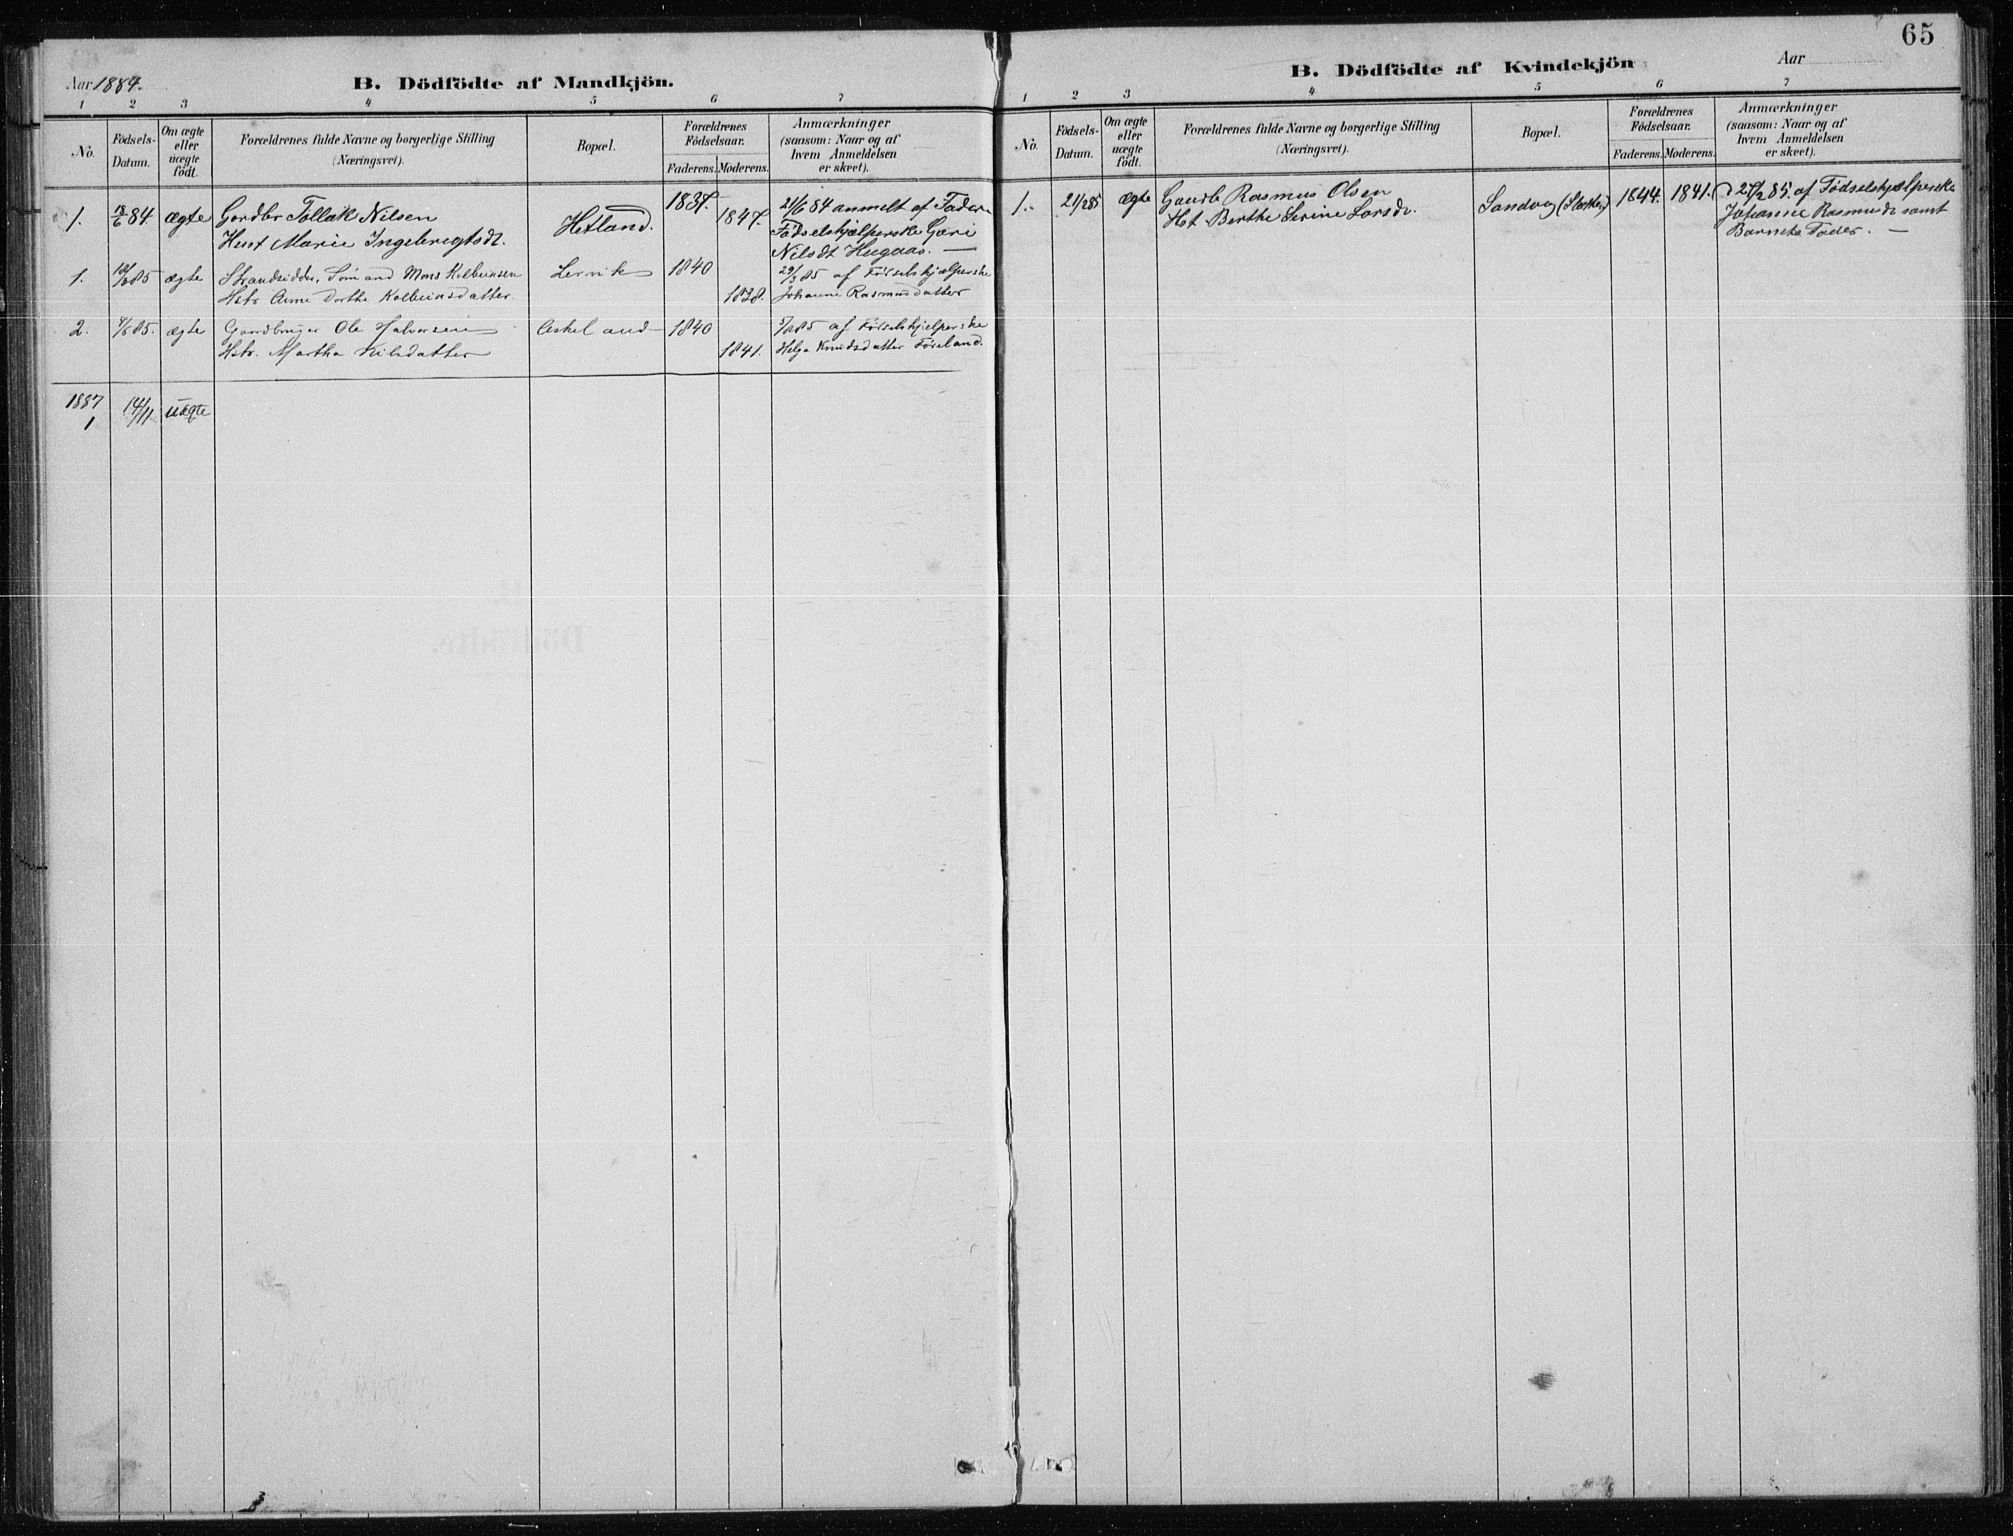 65
Aar 1884.
B. Dödfödte af Mandkjön.
1 2 3 4 5 6 7
No.
Födsels-
Datum.
Om ægte
eller
uægte
født.
Forældrenes fulde Navne og borgerlige Stilling
(Næringsvei).
Bopæl.
Forældrenes
Födselsaar.
Faderens. Moderens.
Anmærkninger
(saasom: Naar og af
hvem Anmeldelsen
er skeet).
1. 18/6 84 ægte Gardbr Tollak Nilsen Hetland. 1837. 1847. 21/6 84 anmelt af Fader
Hust Marie Ingebregtsdt. Fødselshjælperske Gæri
Nilsdt Hugaas. —
1. /3 85 ægte Strandsidder, Sømand Mons Kolbeinsen Lervik 1840 29/3 85 af Fødselshjælperske
Hstr. Anne Dorthe Kolbeinsdatter 1838. Johanne Rasmusdatter
2. 85. ægte Gardbruger Ole Halvorsen Askeland 1840 85 af Fødselshjelperske
Hstr. Martha Nilsdatter 1841. Helga Knudsdatter Føreland.
1887
1 14/11 uægte
B. Dödfödte af Kvindekjön
Aar
1 2 3 4 5 6 7
No.
Födsels-
Datum.
Om ægte
eller
uægte
födt.
Forældrenes fulde Navne og borgerlige Stilling
(Næringsvei).
Bopæl.
Forældrenes
Födselsaar.
Faderens. Moderens.
Anmærkninger
(saasom: Naar og af
hvem Anmeldelsen
er skeet).
1. 21/2 85 ægte Gaardb Rasmus Olsen Sandvg 1844. 1841. 27/2 85. af Fødselshjælperske
Hst Berthe Serine Larsdr. Johanne Rasmusdt samt
Barnets Fader. —